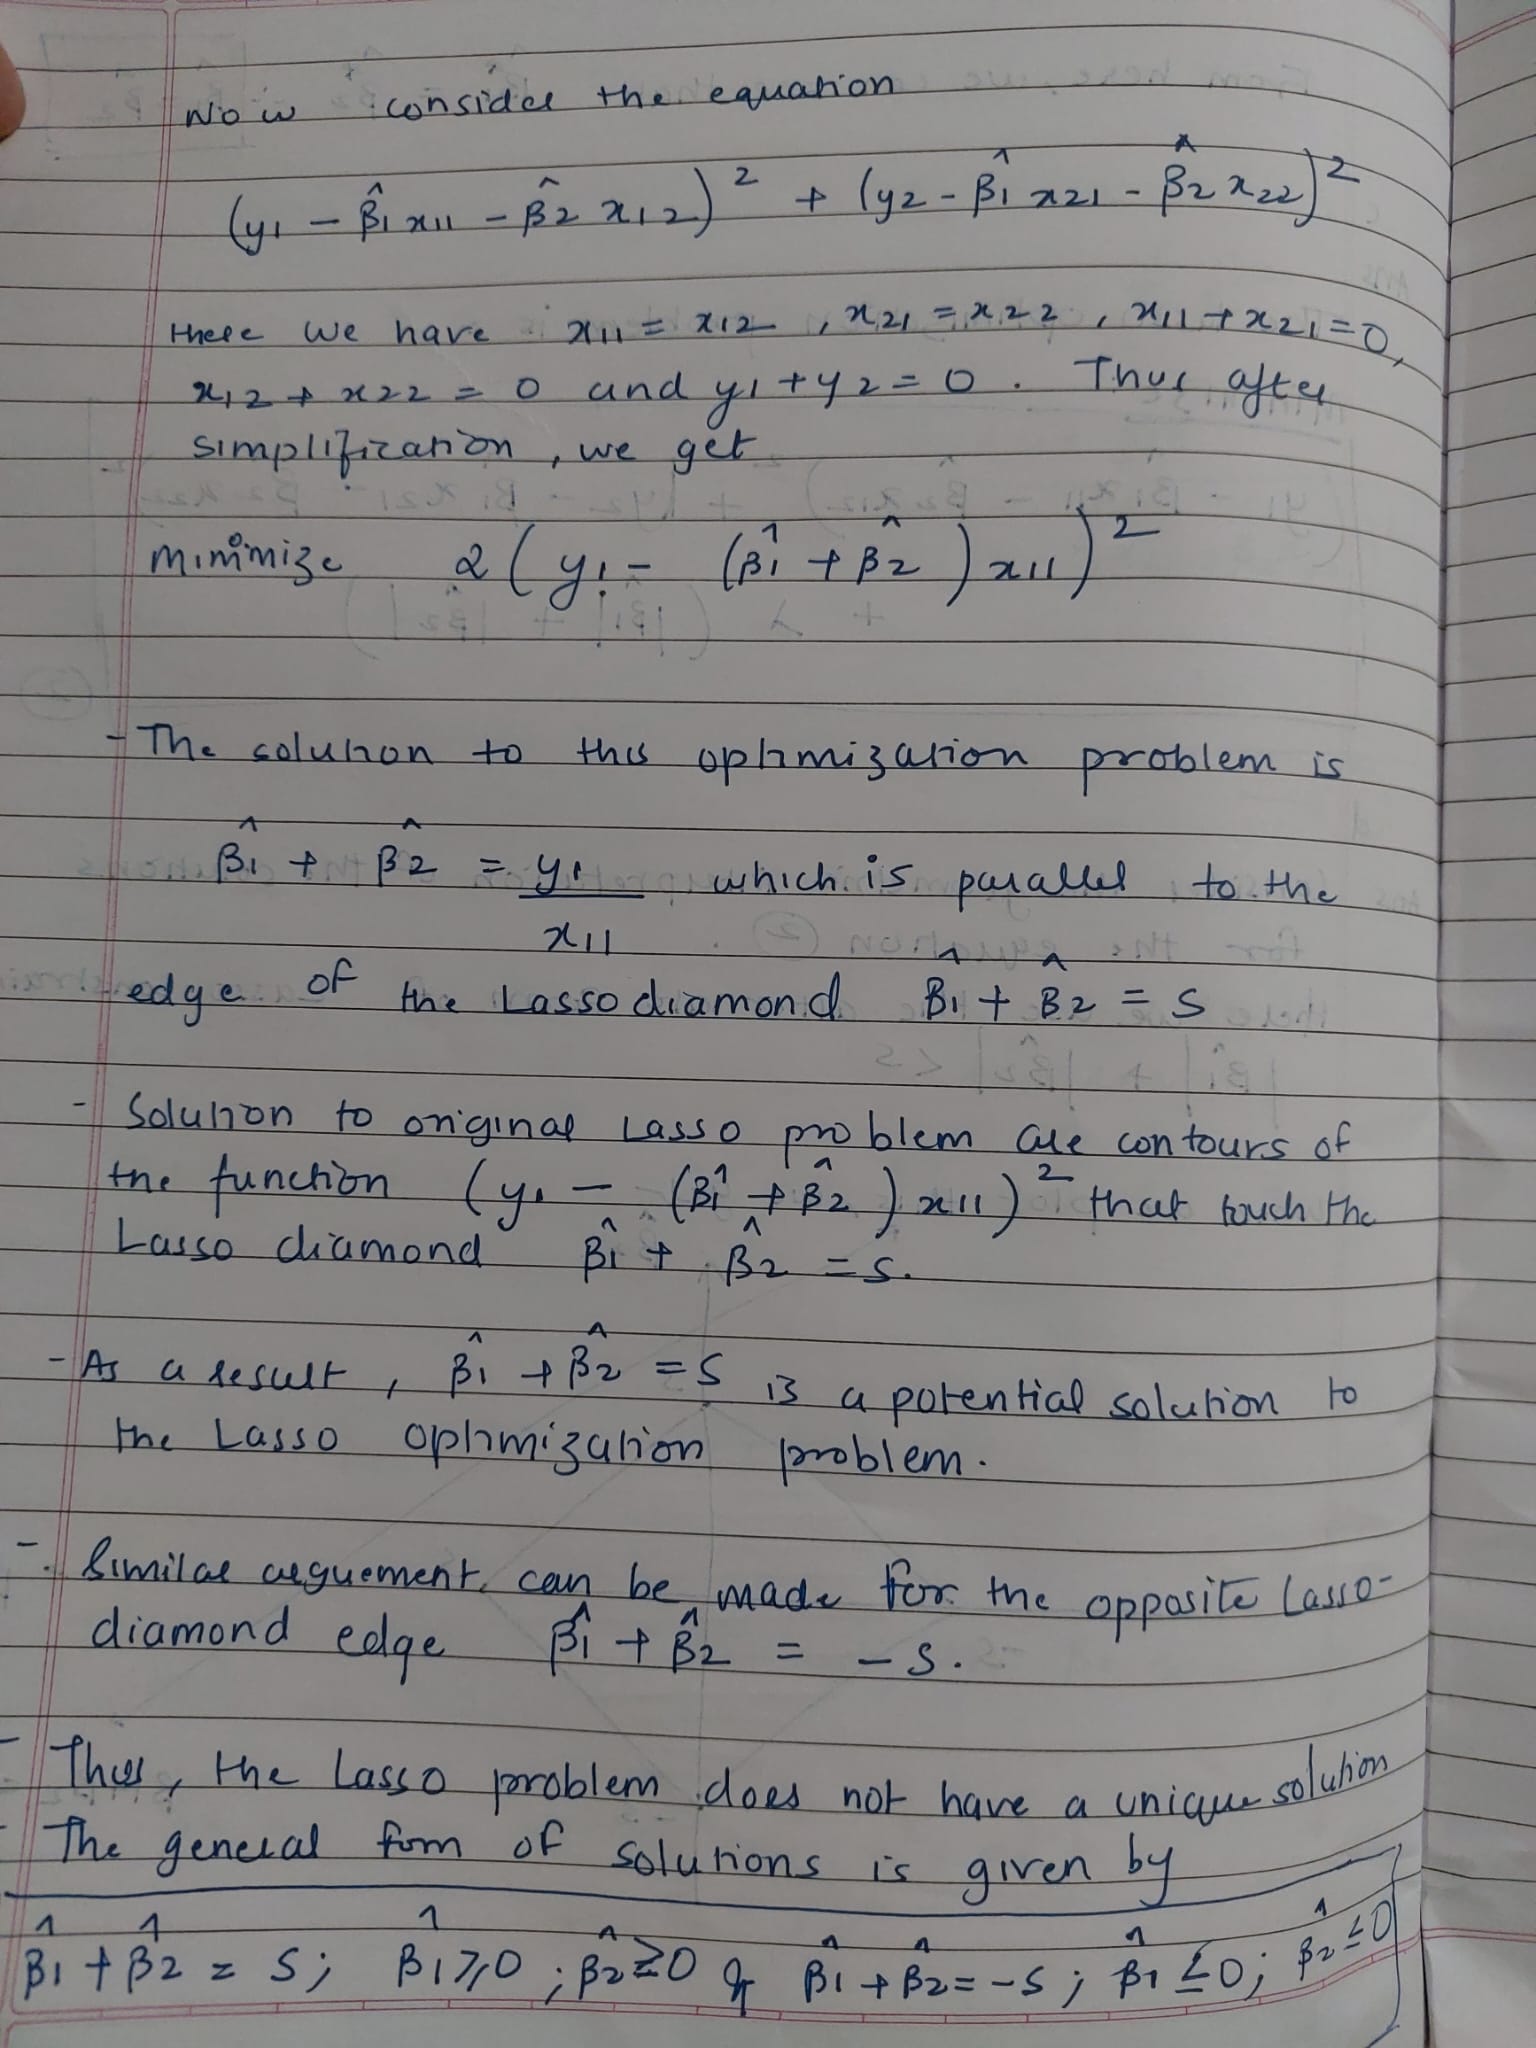 Now consider the equation
(y1 - β̂1 x11 - β̂2 x12)² + (y2 - β̂1 x21 - β̂2 x22)²
Here we have x11 = x12 , x21 = x22 , x11 + x21 = 0,
x12 + x22 = 0 and y1 + y2 = 0 . Thus after
simplification , we get
minimize 2 (y1 - (β̂1 + β̂2) x11)²
- The solution to this optimization problem is
β̂1 + β̂2 = y1/x11 which is parallel to the
edge of the Lasso diamond β̂1 + β̂2 = s
- Solution to original Lasso problem are contours of
the function (y1 - (β̂1 + β̂2) x11)² that touch the
Lasso diamond β̂1 + β̂2 = s.
- As a result , β̂1 + β̂2 = s is a potential solution to
the Lasso optimization problem.
- Similar arguement can be made for the opposite Lasso-
diamond edge β̂1 + β̂2 = -s.
- Thus, the Lasso problem does not have a unique solution
- The general form of solutions is given by
β̂1 + β̂2 = s; β̂1 ≥ 0 ; β̂2 ≥ 0 & β̂1 + β̂2 = -s ; β̂1 ≤ 0; β̂2 ≤ 0